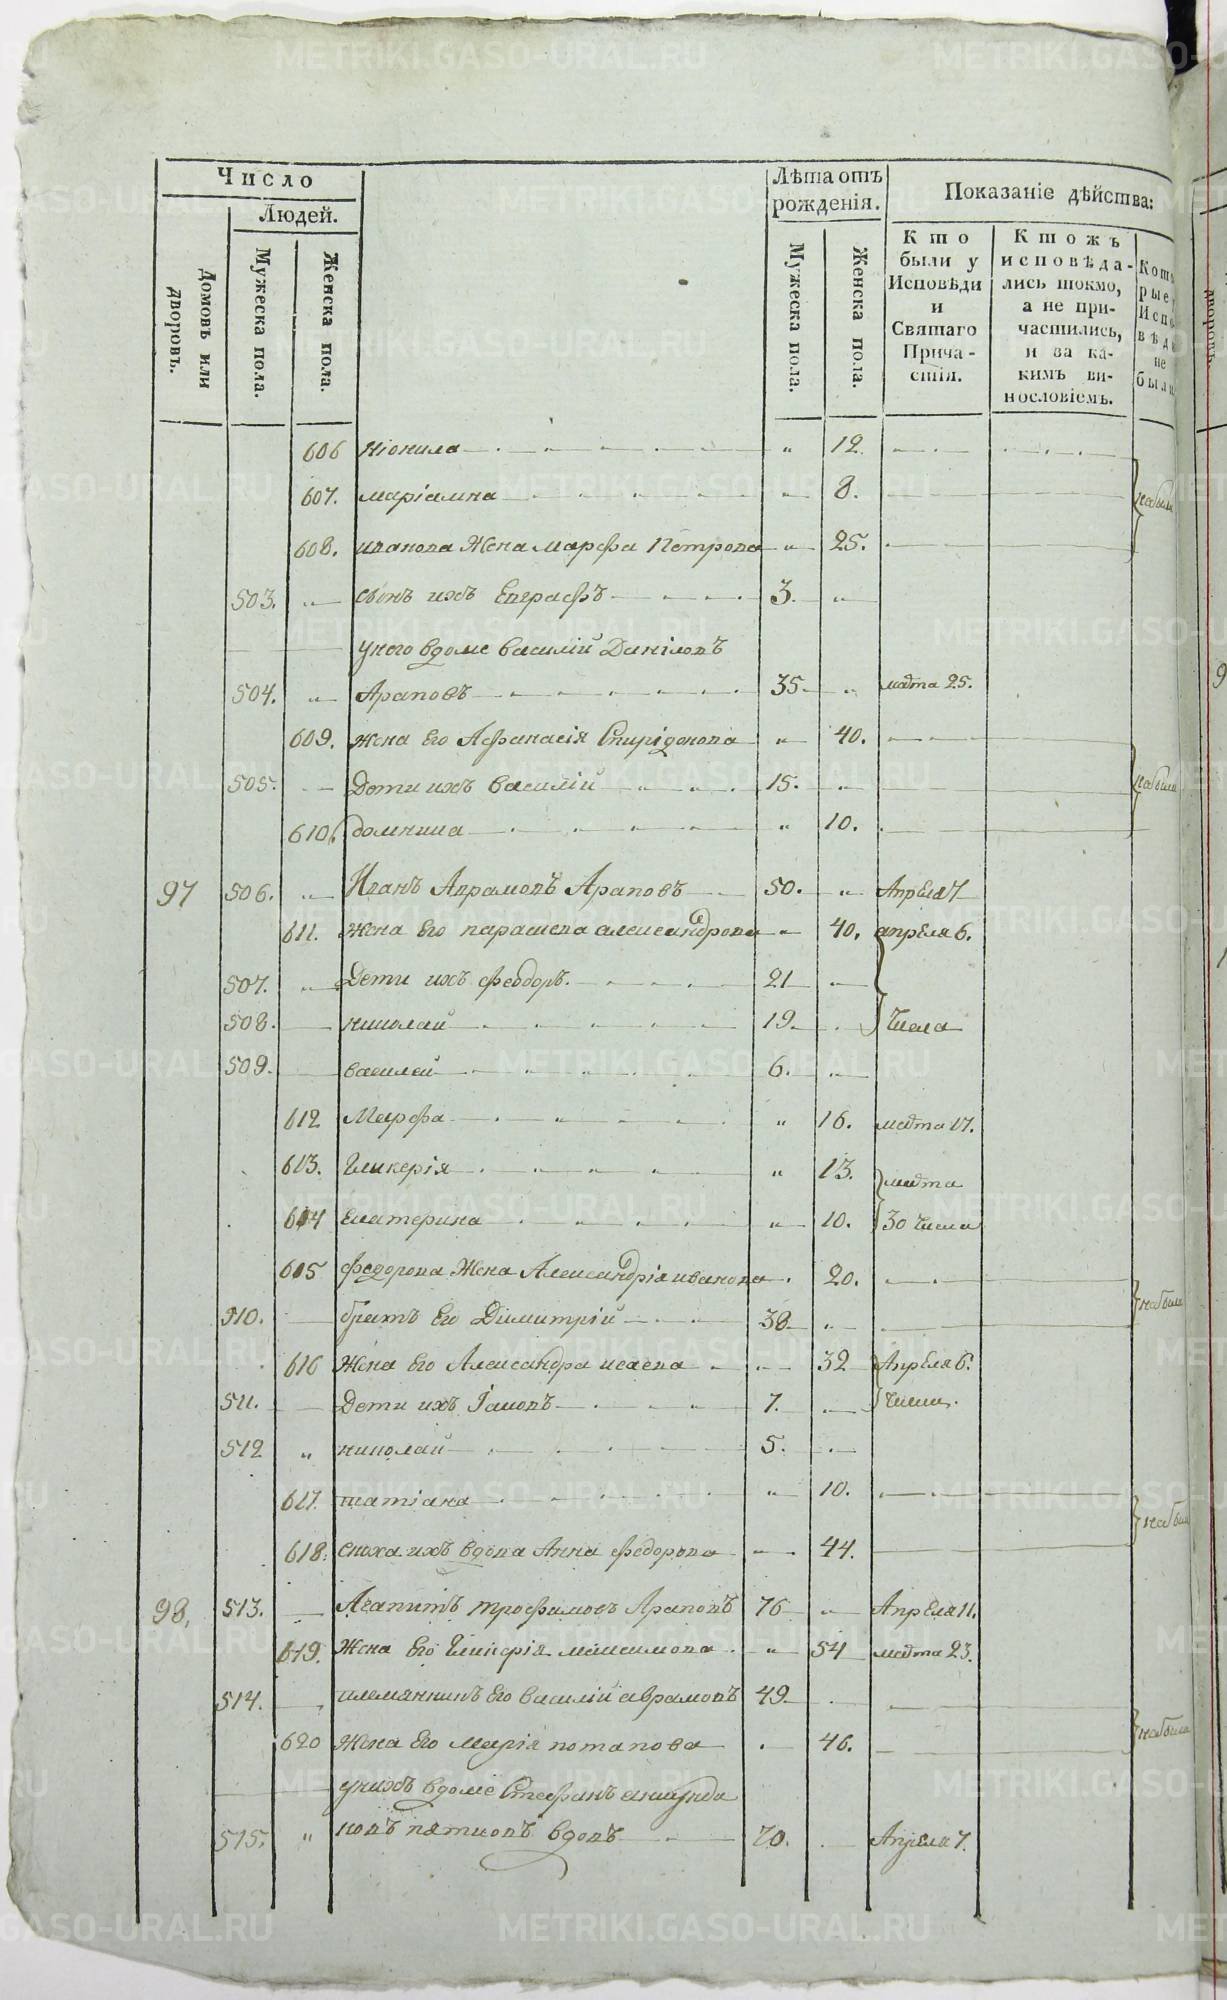 Число
Людей.
Домовъ или дворовъ.
Мужеска пола.
Женска пола.
Лѣта отъ рожденія.
Мужеска пола.
Женска пола.
Показаніе дѣйства:
Кто были у Исповѣди и Святаго Причастія.
Ктожъ исповѣдались токмо, а не причастились, и за какимъ винословіемъ.
Которые Исповѣди не были
606 Ніонила " 12.
607. маріамна " 8. небыли
608. иванова Жена марфа Петрова " 25.
503. " сынъ ихъ Евграфъ 3. "
унего вдоме василій Даніловъ
504. " Араповъ 35. " марта 25.
609. жена Его Афанасія Спирідонова " 40.
505. Дети ихъ василій 15. " небыли
610. домника " 10.
97 506. " Иванъ Аврамовъ Араповъ 50. " Апреля 7
611. Жена Его парасковa александрова " 40. апреля 6.
507. " Дети ихъ феодоръ. 21 "
508. николай 19. числа
509. василей 6. "
612 Марфа " 16. марта 17.
613. Гликерія " 13. марта
614 Екатерина " 10. 30 числа
615 федорова Жена Александрія иванова 20.
510. братъ Его Дімитрій 38 " небыли
616 Жена Его Александра исаева " 32 Апреля 6.
511. Дети ихъ Іаковъ 7. " числа.
512 " николай 5.
617. татіана " 10.
618. сноха ихъ вдова Анна федорова " 44. небыли
98. 513. Агапитъ трофимовъ Араповъ 76 " Апреля 11.
619. Жена Его Гликерія максимова " 54 марта 23.
514. племянникъ Его василій аврамовъ 49.
620 Жена Его марія потапова 46. небыли
унихъ вдоме Стефанъ
515. " новъ пятковъ вдовъ 70. Апреля 7.
METRIKI.GASO-URAL.RU